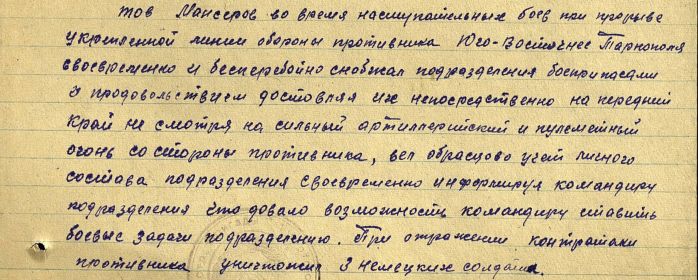 тов Мансеров во время наступательных боев при прорыве
укрепленной линии обороны противника Юго-Восточнее Тарнополя
своевременно и бесперебойно снобжал подразделения боеприпасами
и продовольствием доставляя их непосредственно на передний
край не смотря на сильный артиллерийский и пулеметный
огонь со стороны противника, вел образцово учет личного
состава подразделения своевременно информируя командиру
подразделения что довало возможность командиру ставить
боевые задачи подразделению. При отражении контратаки
противника уничтожил 3 немецких солдата.